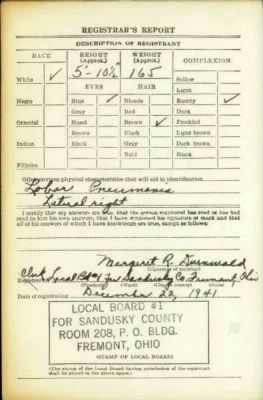 REGISTRAR'S REPORT
DESCRIPTION OF REGISTRANT
RACE HEIGHT (Approx.) WEIGHT (Approx.) COMPLEXION
White ✓ 5'-10½ 165 Sallow
EYES HAIR Light
Negro Blue ✓ Blonde Ruddy ✓
Gray Red Dark
Oriental Hazel Brown ✓ Freckled
Brown Black Light brown
Indian Black Gray Dark brown
Bald Black
Filipino
Other obvious physical characteristics that will aid in identification
Lobar Pneumonia
right
I certify that my answers are true; that the person registered has read or has had
read to him his own answers; that I have witnessed his signature or mark and that
all of his answers of which I have knowledge are true, except as follows:
Margaret R.
(Signature of registrar)
Clerk Local Bd #1 for Sandusky Co. Fremont, Ohio
Date of registration December 22, 1941
LOCAL BOARD #1
FOR SANDUSKY COUNTY
ROOM 208, P. O. BLDG.
FREMONT, OHIO
(STAMP OF LOCAL BOARD)
(The stamp of the Local Board having jurisdiction of the registrant
shall be placed in the above space.)